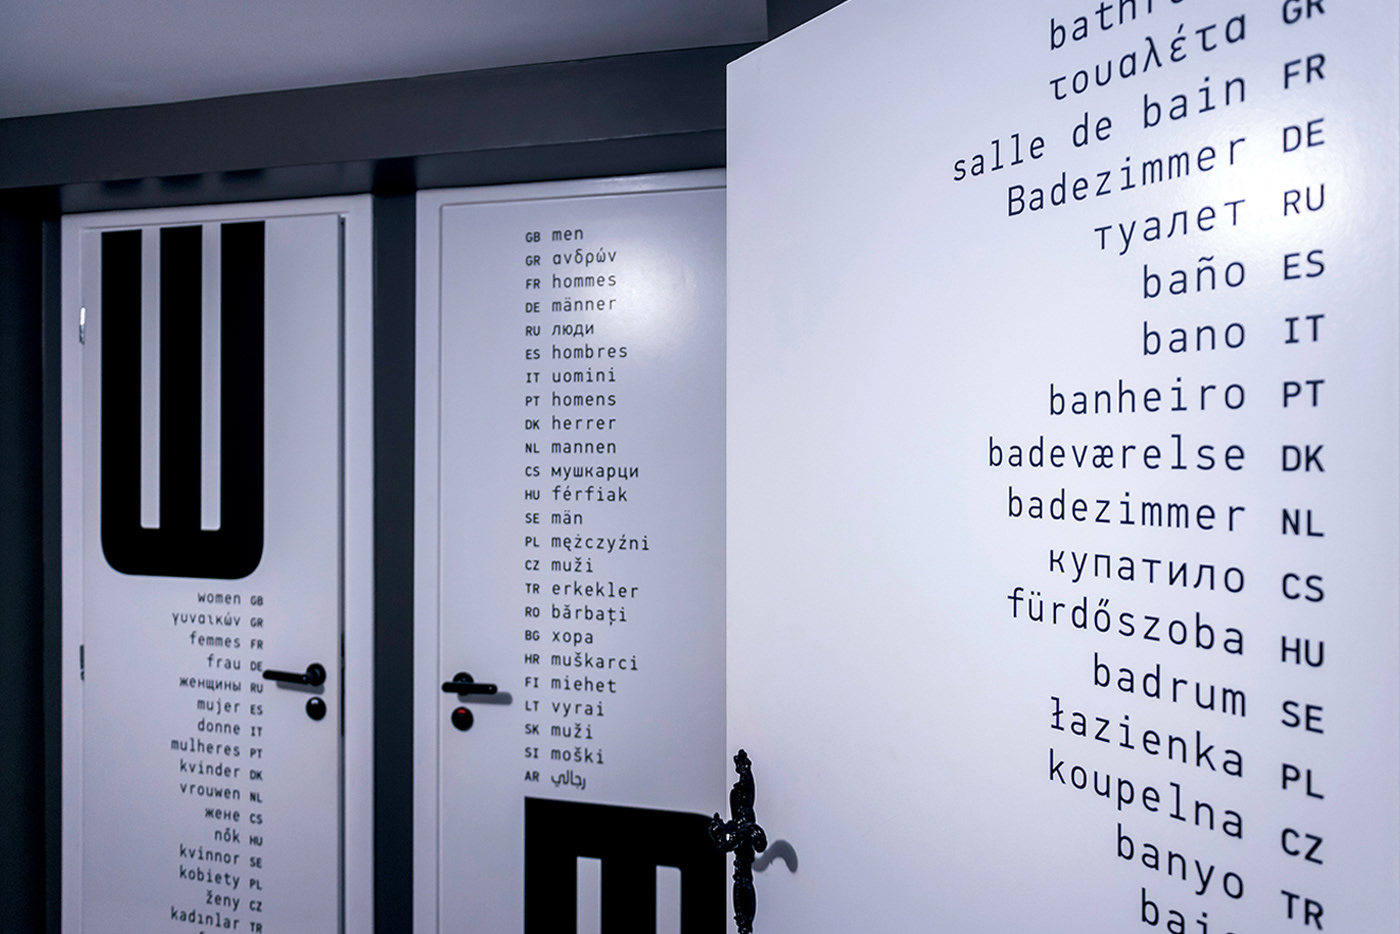 W
women GB
γυναικών GR
femmes FR
frau DE
женщины RU
mujer ES
donne IT
mulheres PT
kvinder DK
vrouwen NL
жене CS
nők HU
kvinnor SE
kobiety PL
ženy CZ
kadınlar TR
GB men
GR ανδρών
FR hommes
DE männer
RU люди
ES hombres
IT uomini
PT homens
DK herrer
NL mannen
CS мушкарци
HU férfiak
SE män
PL mężczyźni
CZ muži
TR erkekler
RO bărbați
BG хора
HR muškarci
FI miehet
LT vyrai
SK muži
SI moški
AR رجالي
m
GR
τουαλέτα
salle de bain FR
Badezimmer DE
туалет RU
baño ES
bano IT
banheiro PT
badeværelse DK
badezimmer NL
купатило CS
fürdőszoba HU
badrum SE
łazienka PL
koupelna CZ
banyo TR